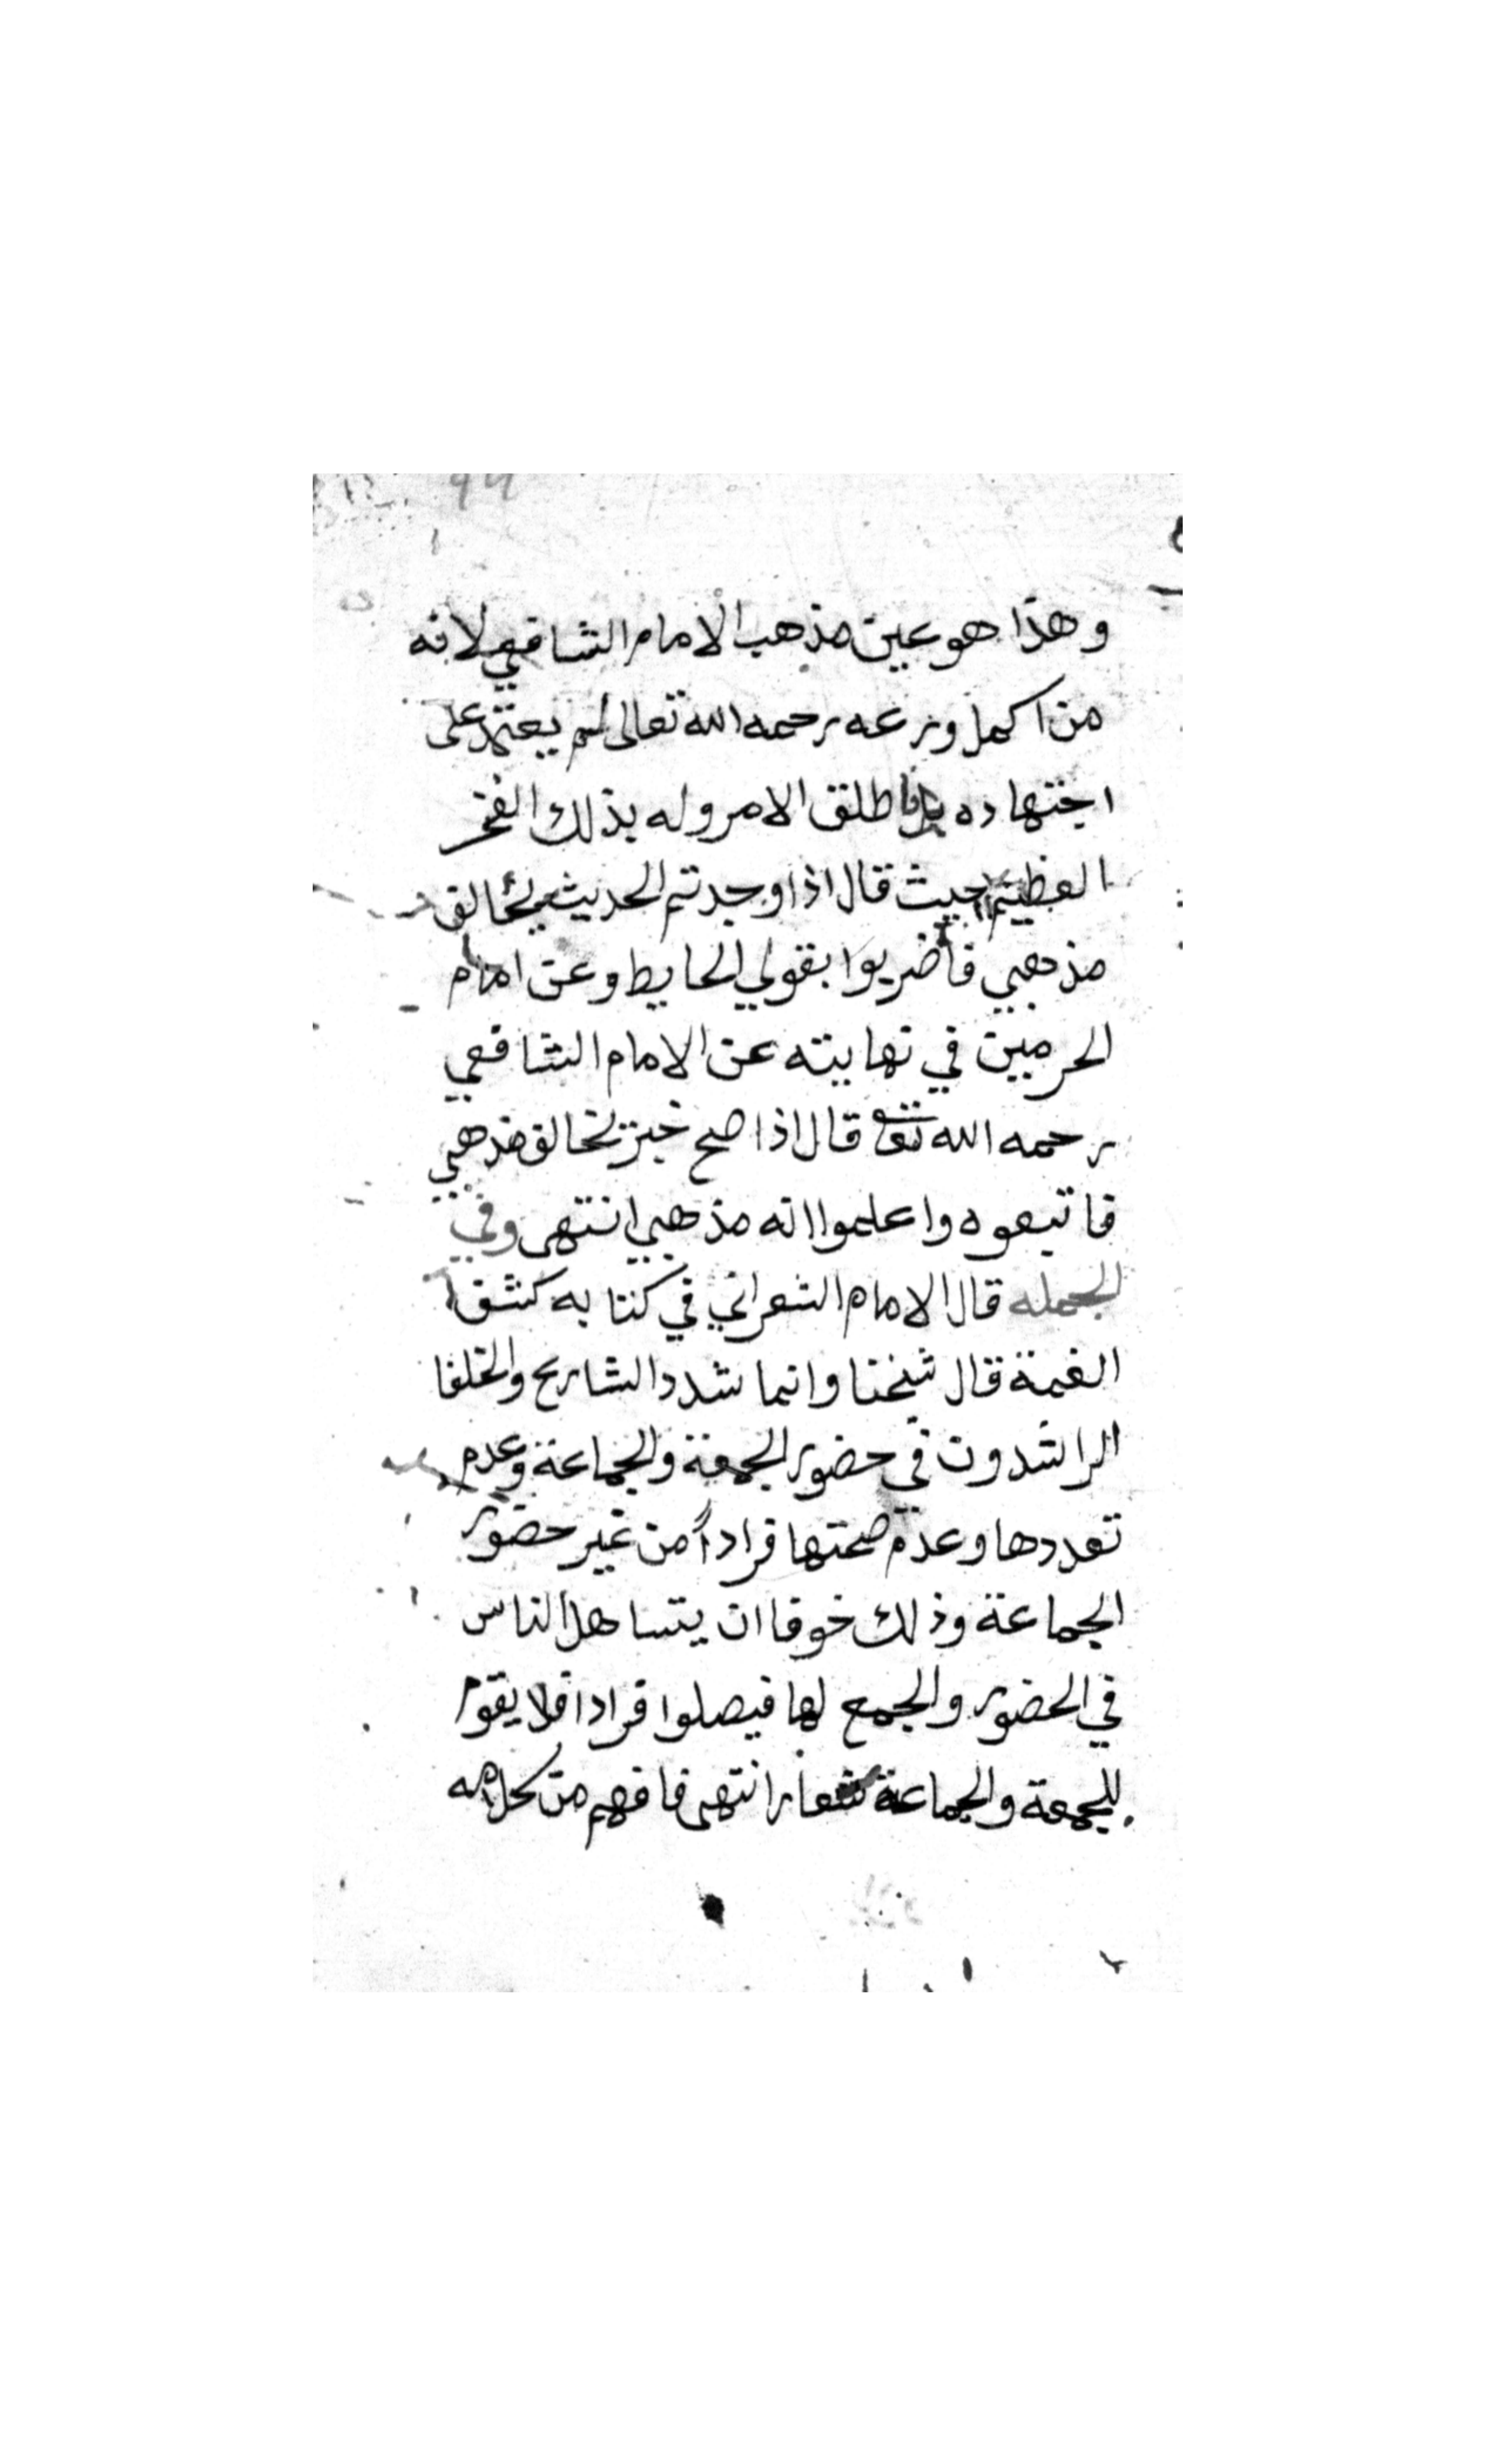 وهذا هو عين مذهب الامام الشافعي لانه
من اكمل ورعه رحمه الله تعالى لم يعتمد على
اجتهاده بل اطلق الامر وله بذلك الفخر
العظيم حيث قال اذا وجدتم الحديث يخالف
مذهبي فاضربوا بقولي الحايط وعن امام
الحرمين في نهايته عن الامام الشافعي
رحمه الله تعا قال اذا صح خبر يخالف مذهبي
فاتبعوه واعلموا انه مذهبي انتهى وفي
الجمله قال الامام الشعراني في كتابه كشف
الغمة قال شيخنا وانما شدد الشارع والخلفا
الراشدون في حضور الجمعة والجماعة وعدم
تعددها وعدم صحتها فراداً من غير حضور
الجماعة وذلك خوفا ان يتساهل الناس
في الحضور والجمع لها فيصلوا فرادا فلا يقوم
للجمعة والجماعة شعار انتهى فافهم من كلامه